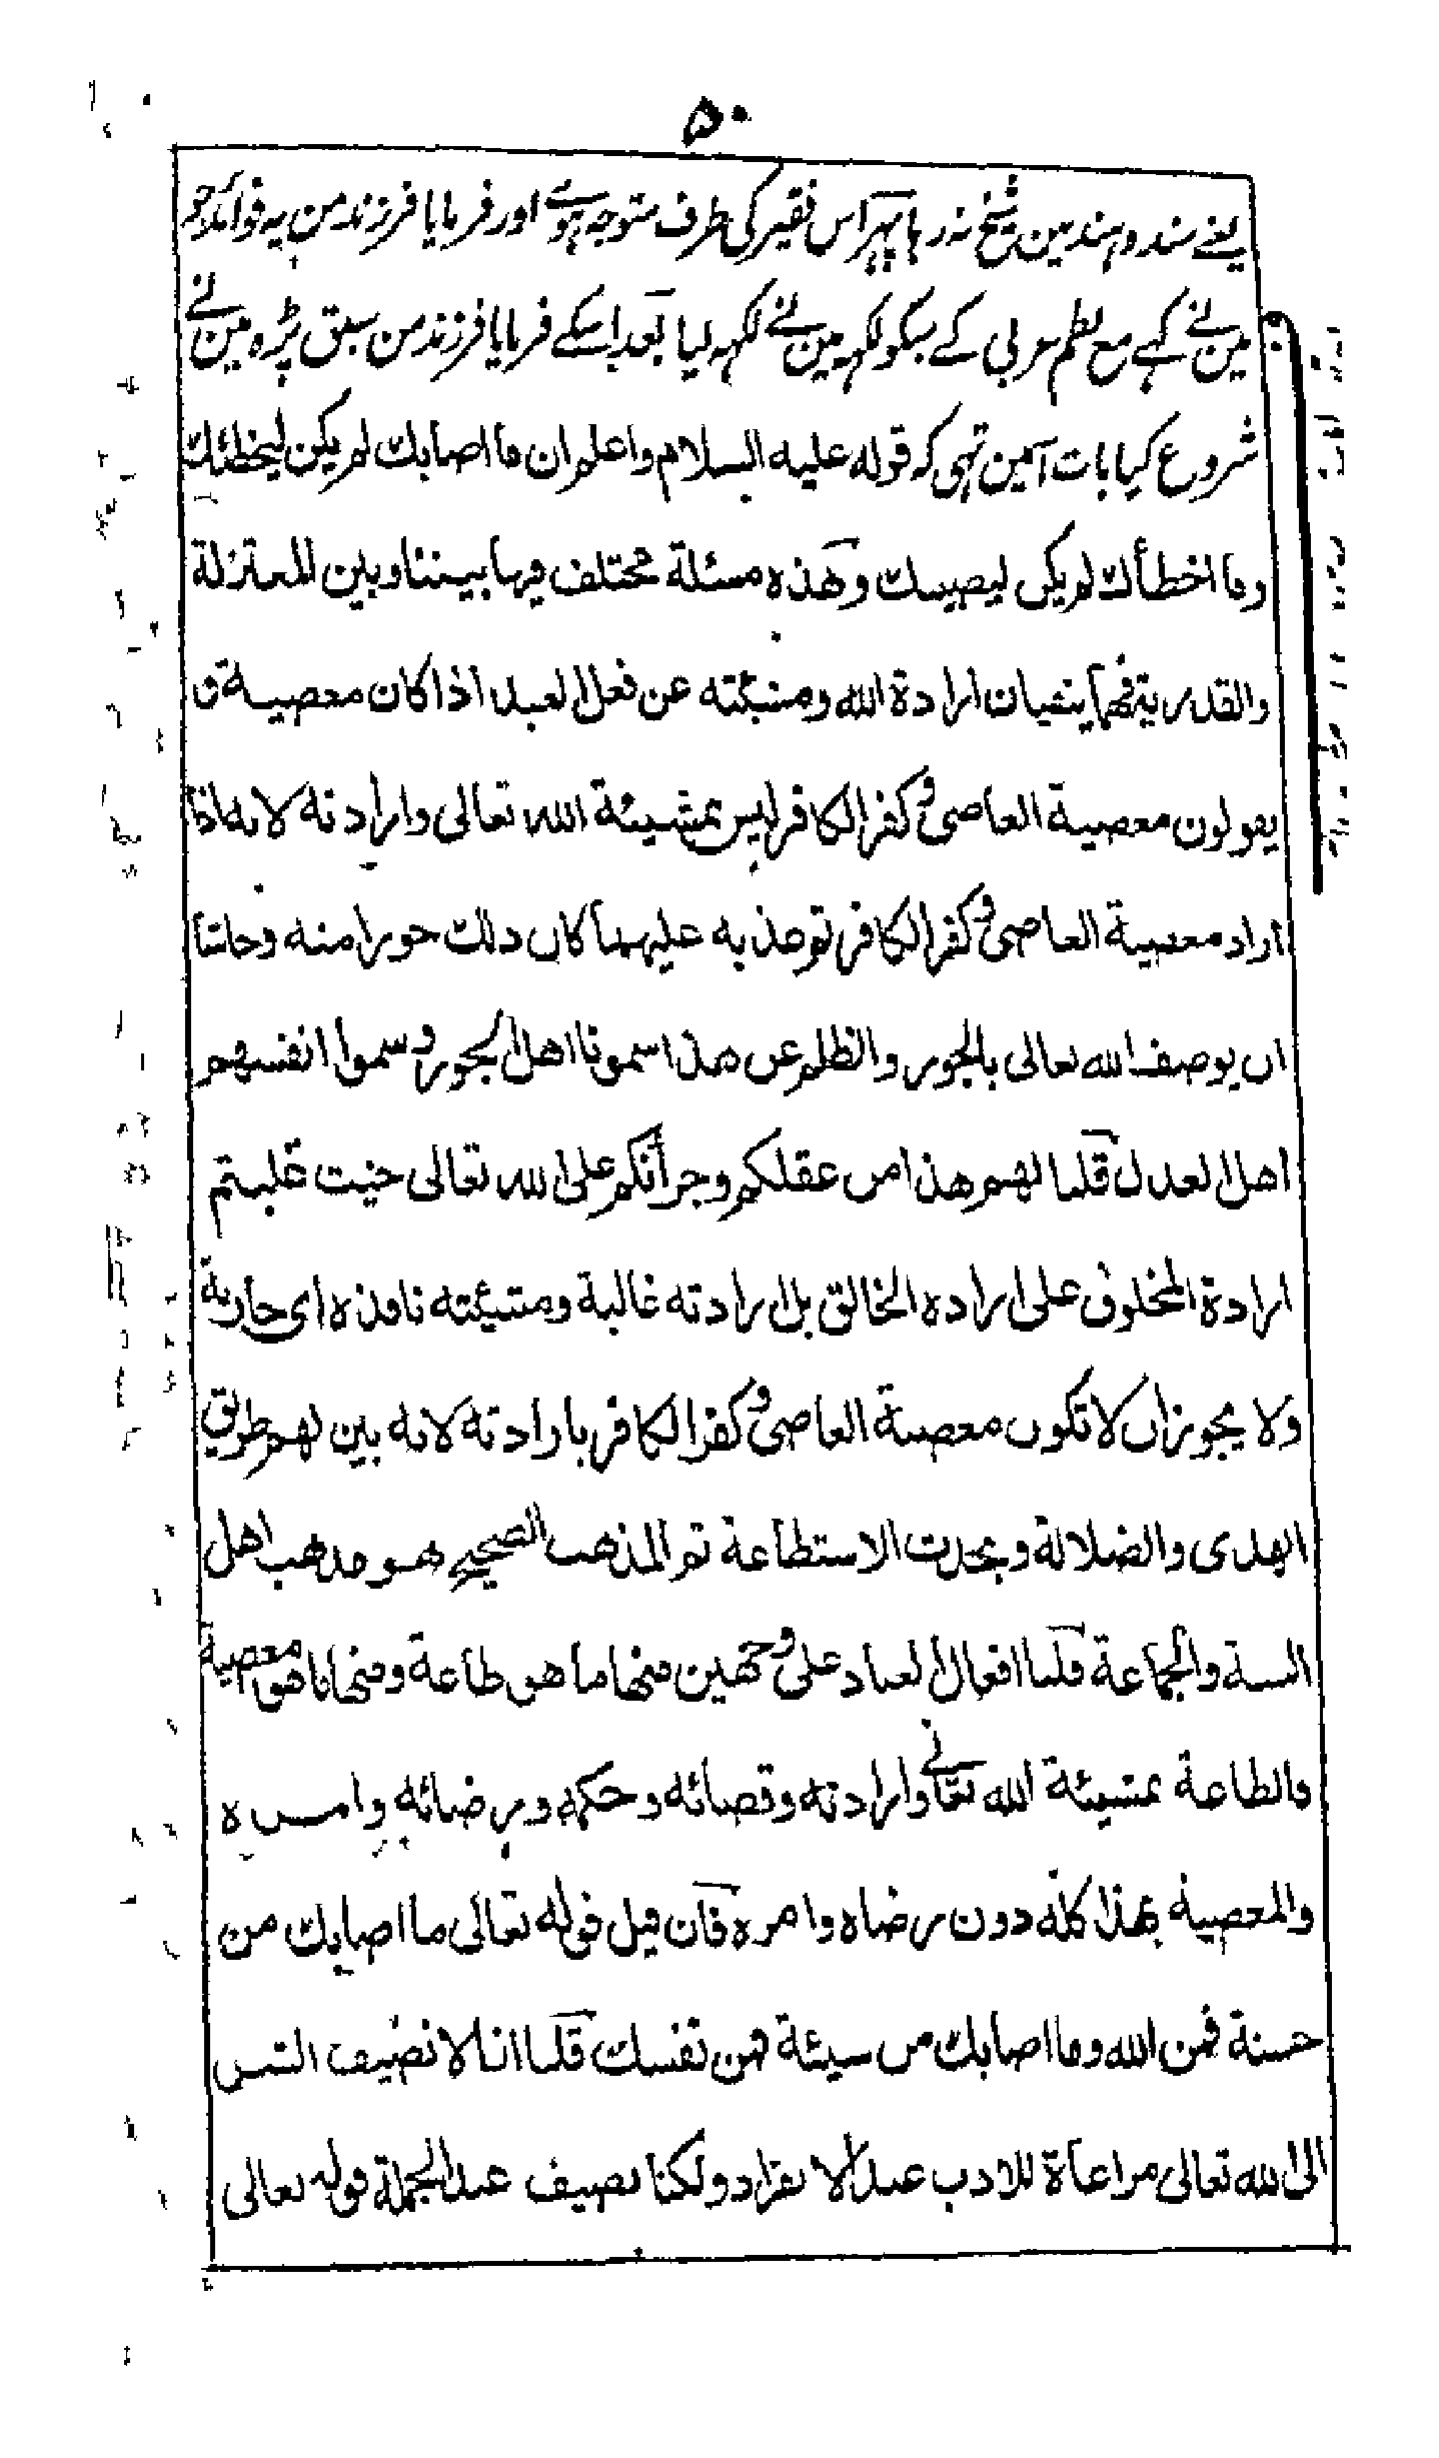 ۵۰
یعنے سندوہند مین شیخ نہ رہا پہر اس فقیر کی طرف متوجہ ہوے اور فرمایا فرزند من یہ فوائد جو
مین نے کہے مع نظم عربی کے سبکو لکہہ مین نے لکہہ لیا بعد اسکے فرمایا فرزند من سبق پڑہ مین نے
شروع کیا بات آمین تہی کہ قوله عليه السلام واعلم ان ما اصابك لم يكن ليخطئك
وما اخطأك لم يكن ليصيبك وهذه مسئلة مختلف فيها بيننا وبين المعتزلة
والقدرية فهما ينفيان ارادة الله ومشيئته عن فعل العبد اذا كان معصية و
يقولون معصية العاصى وكفر الكافر ليس بمشيئة الله تعالى وارادته لانه اذا
اراد معصية العاصى وكفر الكافر ثم عذبه عليهما كان ذلك جورا منه وحاشا
ان يوصف الله تعالى بالجور والظلم عن هذا سمونا اهل الجور وسموا انفسهم
اهل العدل قلنا لهم هذا من عقلكم وجرأتكم على الله تعالى حيث غلبتم
ارادة المخلوق على ارادة الخالق بل ارادته غالبة ومشيئته نافذة اى جارية
ولا يجوز ان لا تكون معصية العاصى وكفر الكافر بارادته لانه بين لهم طريق
الهدى والضلالة وبحدث الاستطاعة ثم المذهب الصحيح هو مذهب اهل
السنة والجماعة قلنا افعال العباد على وجهين منها ما هو طاعة ومنها ما هو معصية
والطاعة بمشيئة الله تعالى وارادته وقضائه وحكمه وبرضائه وامره
والمعصية بهذا كله دون رضاه وامره فان قيل قوله تعالى ما اصابك من
حسنة فمن الله وما اصابك من سيئة فمن نفسك قلنا انا لا نضيف الشر
الى الله تعالى مراعاة للادب عند الانفراد ولكنا نضيف عند الجملة قوله تعالى